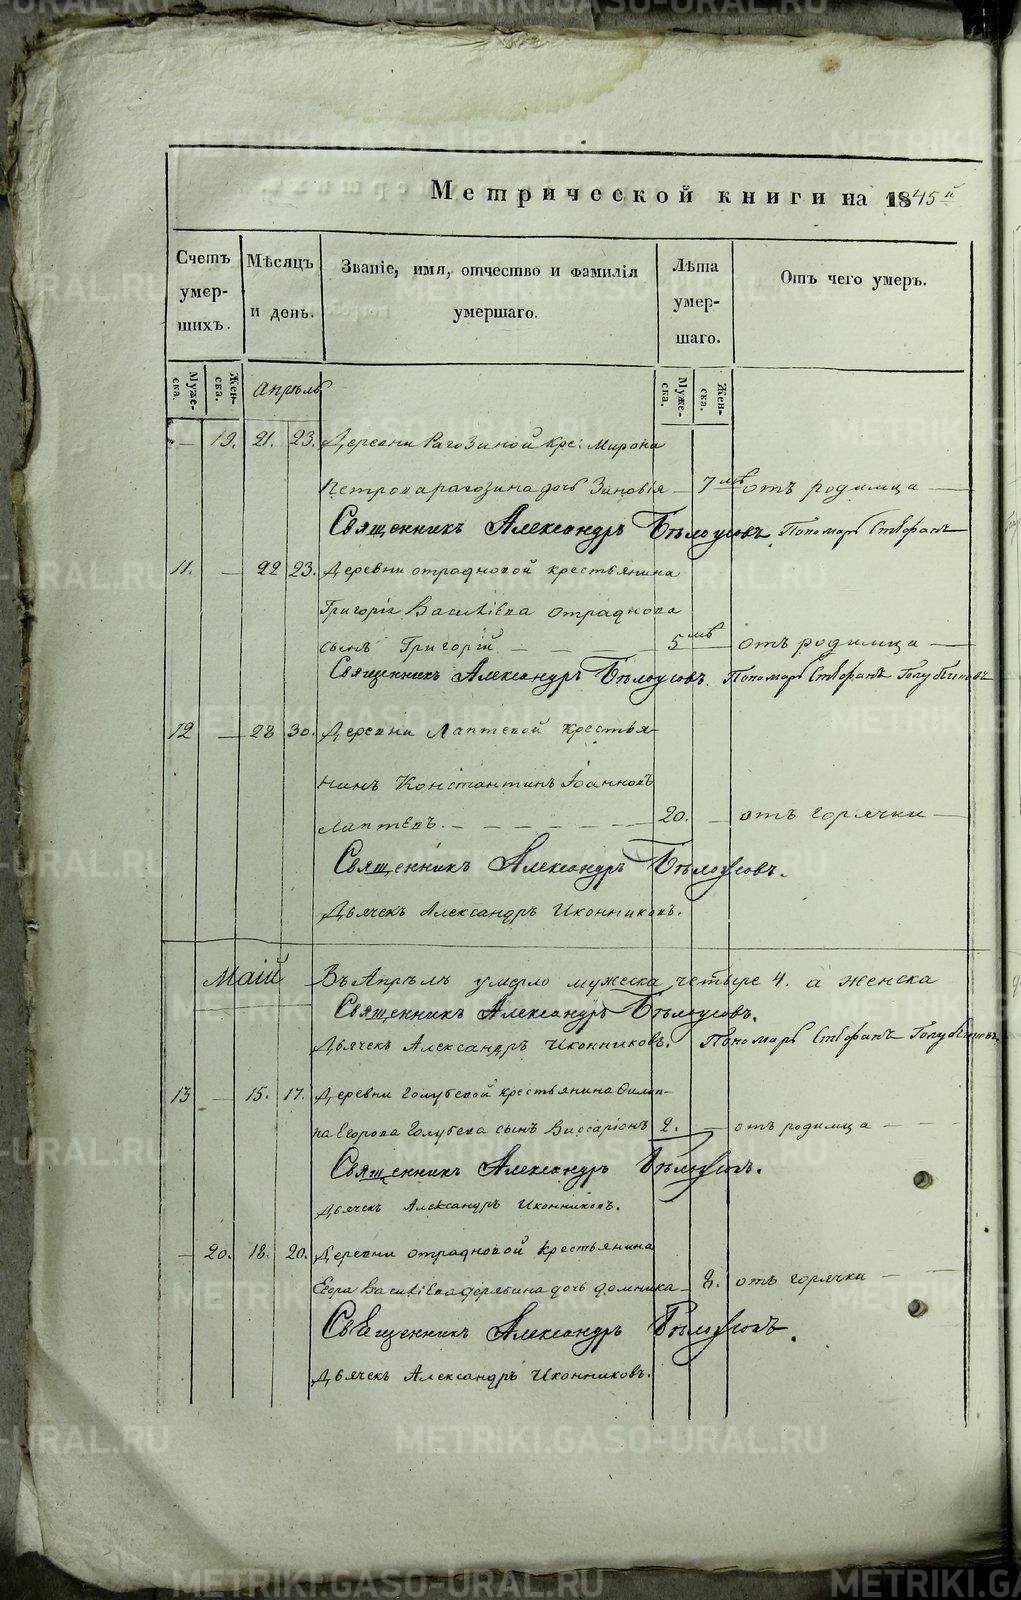 METRIKI.GASO-URAL.RU
Метрической книги на 1845й
Счетъ умершихъ.
Мѣсяцъ и день.
Званіе, имя, отчество и фамилія умершаго.
Лѣта умершаго.
Отъ чего умеръ.
Мужеска. Женска.
Апрѣль
Мужеска. Женска.
— 19. 21. 23. Деревни Рагозиной кре: Мирона
Петрова рагозина дочь Зиновія — 7 мѣ отъ родимца —
Священникъ Александръ Бѣлоусовъ. Пономарь Стефанъ
11. — 22 23. Деревни отрадновой крестьянина
Григорія Василіева отраднова
сынъ Григорій — — — 5 мѣ — отъ родимца —
Священникъ Александръ Бѣлоусовъ. Пономарь Стефанъ Голубчиковъ
12 — 28 30. Деревни Лаптевой крестья-
нинъ Константинъ Іоанновъ
Лаптевъ. — — — — — 20. — отъ горячки —
Священникъ Александръ Бѣлоусовъ.
Дьячекъ Александръ Иконниковъ.
Маій Въ Апрѣлѣ умерло мужеска четыре 4. а женска
Священникъ Александръ Бѣлоусовъ.
Дьячекъ Александръ Иконниковъ. Пономарь Стефанъ
13 — 15. 17. Деревни Голубевой крестьянина Филип-
па Егорова Голубева сынъ Виссаріонъ 2. — отъ родимца — —
Священникъ Александръ Бѣлоусовъ.
Дьячекъ Александръ Иконниковъ.
— 20. 18. 20. Деревни отрадновой крестьянина
Егора Василіева дерябина дочь домника — 8. отъ горячки — —
Священникъ Александръ Бѣлоусовъ.
Дьячекъ Александръ Иконниковъ.